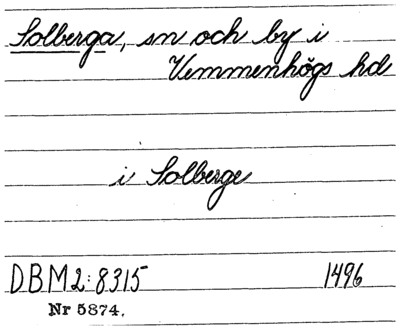 Solberga, sn och by i
Vemmenhögs hd
i Solberge
DBM2:8315 1496
Nr 5874.